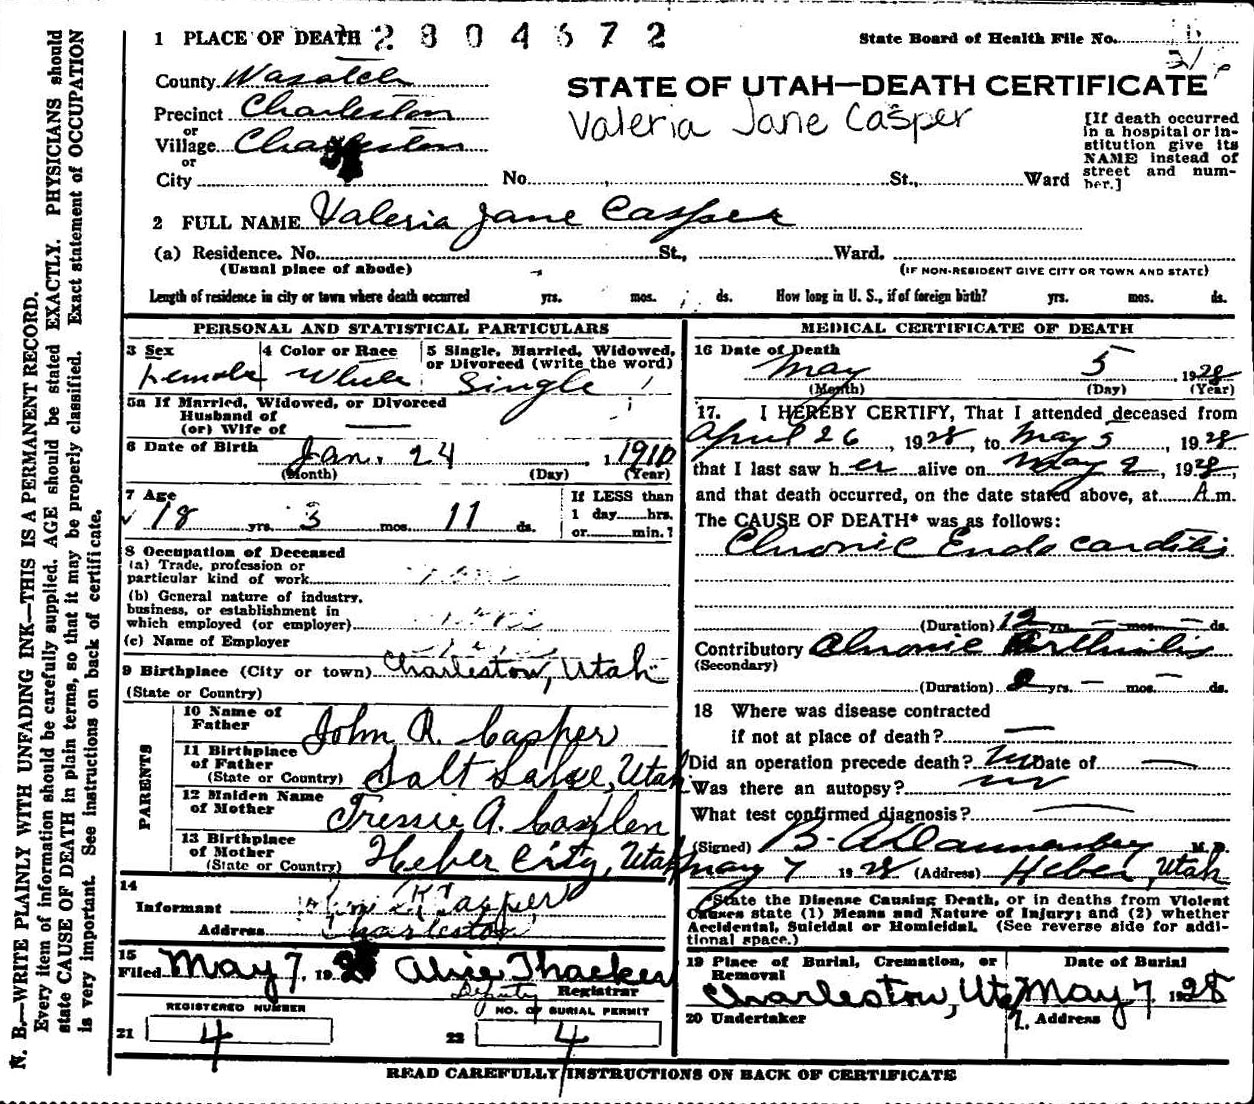 1 PLACE OF DEATH 2804672
State Board of Health File No.
County Wasatch
STATE OF UTAH—DEATH CERTIFICATE
Precinct Charleston
Valeria Jane Casper
or
Village Charleston
or
City No. St., Ward
[If death occurred
in a hospital or in-
stitution give its
NAME instead of
street and num-
ber.]
2 FULL NAME Valeria Jane Casper
(a) Residence. No. St., Ward.
(Usual place of abode) (IF NON-RESIDENT GIVE CITY OR TOWN AND STATE)
Length of residence in city or town where death occurred yrs. mos. ds. How long in U. S., if of foreign birth? yrs. mos. ds.
PERSONAL AND STATISTICAL PARTICULARS
3 Sex 4 Color or Race 5 Single, Married, Widowed,
or Divorced (write the word)
Female White Single
5a If Married, Widowed, or Divorced
Husband of
(or) Wife of —
6 Date of Birth Jan. 24, 1910
(Month) (Day) (Year)
7 Age If LESS than
18 yrs. 3 mos. 11 ds. 1 day hrs.
or min.?
8 Occupation of Deceased
(a) Trade, profession or
particular kind of work
(b) General nature of industry,
business, or establishment in
which employed (or employer)
(c) Name of Employer
9 Birthplace (City or town) Charleston, Utah
(State or Country)
PARENTS
10 Name of
Father John R. Casper
11 Birthplace
of Father
(State or Country) Salt Lake, Utah
12 Maiden Name
of Mother A.
13 Birthplace
of Mother
(State or Country) Heber City, Utah
14
Informant Casper
Address Charleston
15
Filed May 7, 1928 Alice Thacker
Deputy Registrar
REGISTERED NUMBER NO. OF BURIAL PERMIT
21 4 22 4
MEDICAL CERTIFICATE OF DEATH
16 Date of Death
May 5, 1928
(Month) (Day) (Year)
17. I HEREBY CERTIFY, That I attended deceased from
April 26, 1928, to May 5, 1928
that I last saw her alive on May 2, 1928,
and that death occurred, on the date stated above, at A m.
The CAUSE OF DEATH* was as follows:
Chronic Endocarditis
(Duration) 12 yrs. — mos. — ds.
Contributory Chronic Arthritis
(Secondary)
(Duration) yrs. — mos. — ds.
18 Where was disease contracted
if not at place of death? —
Did an operation precede death? no Date of —
Was there an autopsy? no
What test confirmed diagnosis? —
(Signed) M.D.
May 7 1928 (Address) Heber, Utah
*State the Disease Causing Death, or in deaths from Violent
Causes state (1) Means and Nature of Injury; and (2) whether
Accidental, Suicidal or Homicidal. (See reverse side for addi-
tional space.)
19 Place of Burial, Cremation, or
Removal Date of Burial
Charleston, Ut May 7, 1928
20 Undertaker Address
READ CAREFULLY INSTRUCTIONS ON BACK OF CERTIFICATE
N. B.—WRITE PLAINLY WITH UNFADING INK—THIS IS A PERMANENT RECORD.
Every item of information should be carefully supplied. AGE should be stated EXACTLY. PHYSICIANS should
state CAUSE OF DEATH in plain terms, so that it may be properly classified. Exact statement of OCCUPATION
is very important. See instructions on back of certificate.